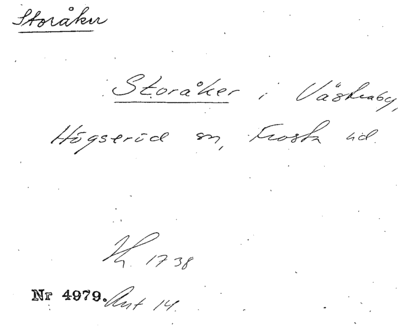 Storåker
Storåker i Västraby,
Högseröd sn, Frosta hd.
1738
Nr 4979. Ant 14.